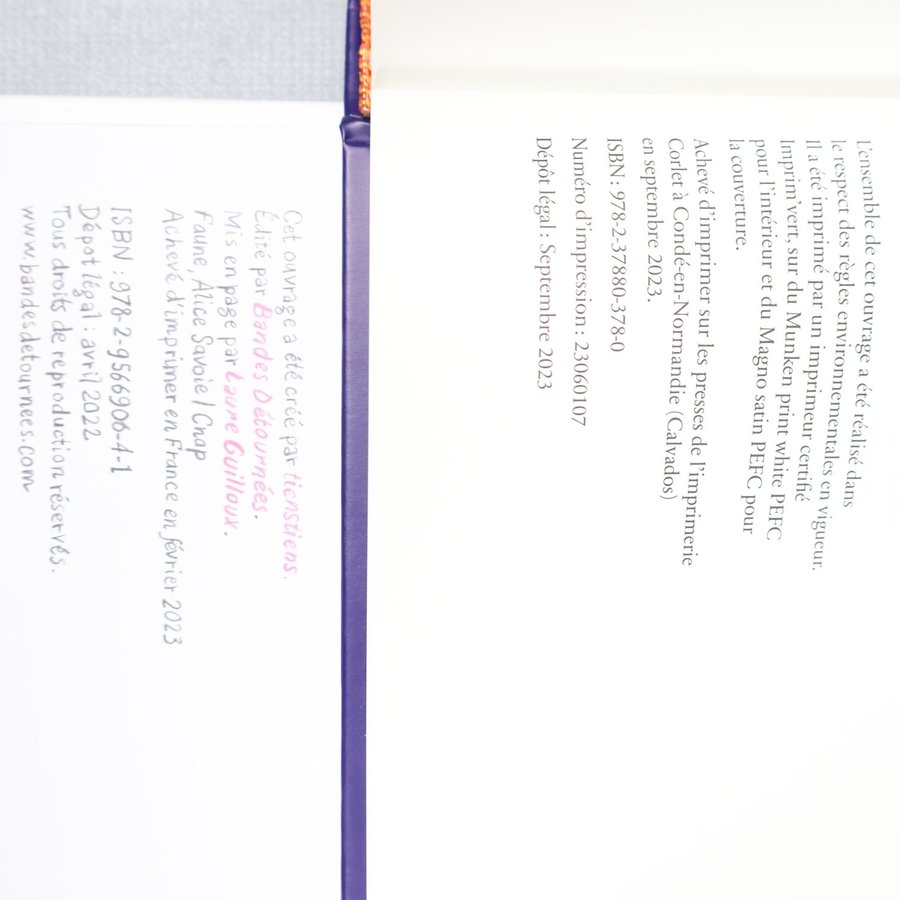 L'ensemble de cet ouvrage a été réalisé dans
le respect des règles environnementales en vigueur.
Il a été imprimé par un imprimeur certifié
Imprim'vert, sur du Munken print white PEFC
pour l'intérieur et du Magno satin PEFC pour
la couverture.
Achevé d'imprimer sur les presses de l'imprimerie
Corlet à Condé-en-Normandie (Calvados)
en septembre 2023.
ISBN : 978-2-37880-378-0
Numéro d'impression : 23060107
Dépôt légal : Septembre 2023
Cet ouvrage a été créé par tienstiens.
Édité par Bandes Détournées.
Mis en page par Laure Guilloux.
Faune, Alice Savoie / Cnap
Achevé d'imprimer en France en février 2023
ISBN : 978-2-9566906-4-1
Dépôt légal : avril 2022
Tous droits de reproduction réservés.
www.bandesdetournees.com